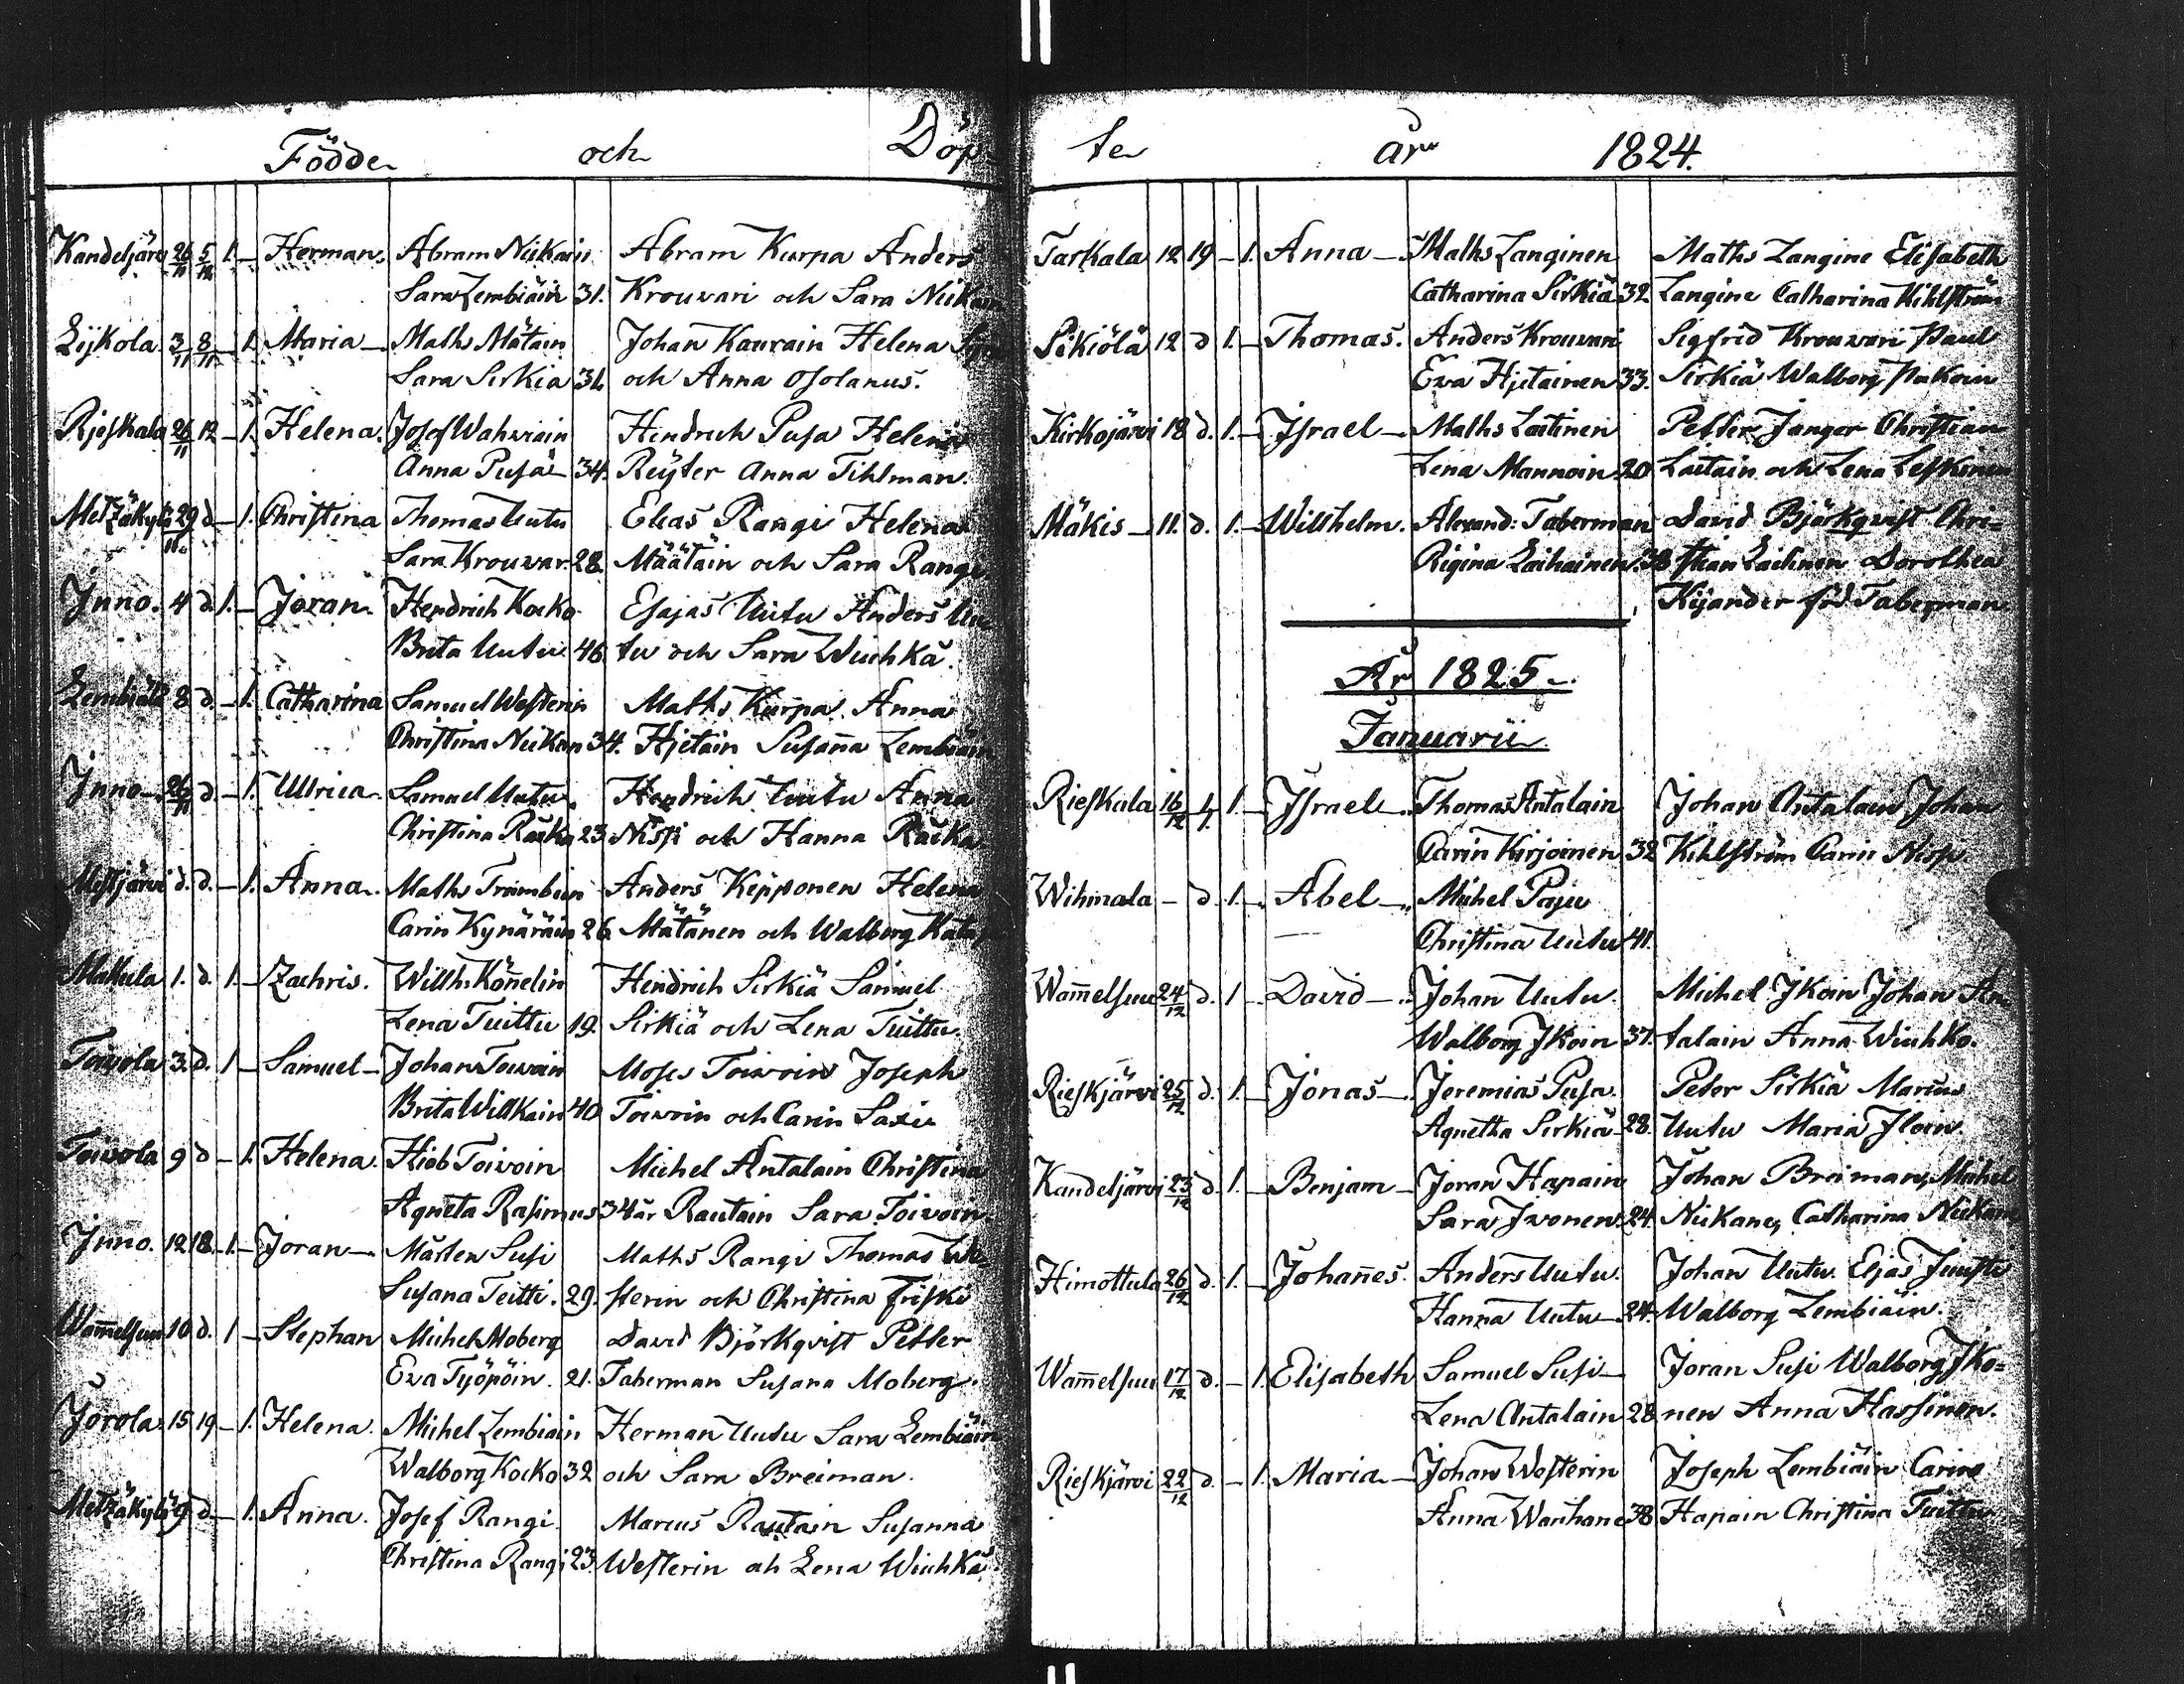 Födde och Döp-
Kandeljärvi 26/11 5/12 1. - Herman. Abram Niikain Abram Kurpa Anders
Sara Lembiäin 31. Krouvari och Sara Niikain
Lijkola 3/11 8/11 - 1. Maria - Maths Mätäin Johan Kaurain Helena
Sara Sirkia 31. och Anna Osolanus.
Rjeskala 26/11 12 - 1. Helena. Josef Wahviain Hendrich Pusa Helena
Anna Pusa 34. Reÿter Anna Tihlman.
Metzäkylä 29/11 d - 1. Christina Thomas Uutu Elias Rangi Helena
Sara Krouvar 28. Määtäin och Sara Rangi
Jnno. 4 d. 1. - Joran Hendrich Kocko Esajas Uutu Anders Uu-
Brita Uutu 46 tu och Sara Wiuhka.
Lembiälä 8 d. - 1. Catharina Samuel Westerin Maths Kurpa Anna
Christina Niikan 34. Hjetain Susana Lembiäin
Jnno - 26/11 d. - 1. Ulrica Samuel Uutu. Hendrich Uutu Anna
Christina Räika 23. Nissi och Hanna Räcka
Mestjärvi d. d. - 1. Anna. Maths Trömbein Anders Kepponen Helena
Carin Kynäräin 26. Mätänen och Walborg
Makula 1. d. 1. - Zachris. Willh. Könelin Hendrich Sirkiä Samuel
Lena Tuittu 19. Sirkiä och Lena Tuittu.
Toivola 3. d. 1 - Samuel - Johan Toivoin Moses Toivoin Joseph
Brita Willkain 40 Toivoin och Carin Saxiu
Toivola 9 d - 1. Helena. Hiob Toivoin Michel Antalain Christina
Agneta Rasimus 34 år Rautain Sara Toivoin.
Jnno. 12 18 - 1. - Joran - Mårten Susi Maths Rangi Thomas We-
Susana Teitti. 29. sterin och Christina Friski
Wamelsuu 10 d. 1 - Stephan Michel Moberg David Björkqvist Petter
Eva Työpöin. 21. Taberman Susana Moberg.
Jorola. 15 19 - 1. Helena. Michel Lembiäin Herman Uutu Sara Lembiäin
Walborg Kocko 32 och Sara Breiman.
Metzäkylä 9 d - 1. Anna. Josef Rangi Marcus Rautain Susanna
Christina Rangi 23. Westerin och Lena Wiuhka.
te år 1824.
Taskala 12 19 - 1. Anna - Maths Langinen Maths Langine Elisabeth
Catharina Sirkiä 32. Langine Catharina Kihlström
Sikiölä 12 d 1. - Thomas. Anders Krouvari Sigfrid Krouvari Paul
Eva Hjetainen 33. Sirkiä Walborg Pukoin
Kirkojärvi 18 d. 1. - Jsrael - Maths Laitinen Petter Janger Christian
Lena Mannoin 20 Laitain och Lena Leskinen
Mäkis - 11. d. 1. - Willhelm. Alexand: Taberman David Björkqvist Chri=
Rigina Laihainen. 38 stian Laitinen Dorothea
Kijander föd Taberman
År 1825 -
Januarii
Rieskala 16/12 1/1. 1. - Jsrael - Thomas Antalain Johan Antalain Johan
Carin Kirjoinen 32 Kihlström Carin Nissi.
Wihmala - d. 1. - Abel - Michel Paju
Christina Uutu 41.
Wamelsuu 24/12 d. 1 - David - Johan Uutu. Michel Jkoin Johan An-
Walborg Jkoin 37. talain Anna Wiuhko.
Rieskjärvi 25/12 d. 1. - Jonas - Jeremias Pusa. Peter Sirkiä Marcus
Agnetha Sirkiä 28. Uutu Maria Jloin.
Kandeljärvi 23/12 d. 1. - Benjam - Joran Hapain Johan Breiman, Michel
Sara Jvonen. 24. Niikane, Catharina Niikane
Himottula 26/12 d. 1. - Johanes. Anders Uutu. Johan Uutu Eljas Juusti
Hanna Uutu - 24. Walborg Lembiäin.
Wamelsuu 17/12 d. - 1. Elisabeth Samuel Susi - Joran Susi Walborg Jko=
Lena Antalain 28 nen Anna Hassinen.
Rieskjärvi 22/12 d. - 1. Maria - Johan Westerin Joseph Lembiäin Carin
Anna Wanhane 38 Hapain Christina Tuittu